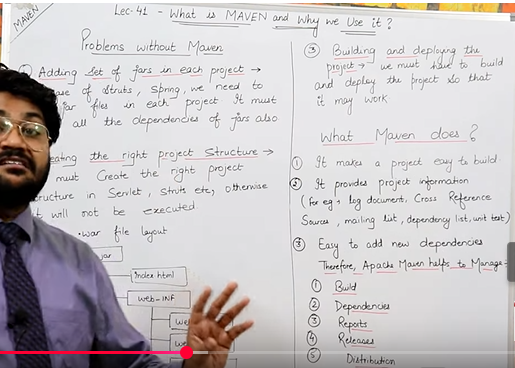 MAVEN
Lec-41 - What is MAVEN and Why we Use it?
Problems without Maven
Adding set of jars in each project →
ase of Struts, Spring, we need to
jar files in each project It must
all the dependencies of jars also
eating the right project Structure →
must Create the right project
structure in Servlet, Struts etc, otherwise
it will not be executed.
• war file layout
jar
Index html
Web-INF
We
We
③ Building and deploying the
project → we must have to build
and deploy the project so that
it may work
What Maven does?
① It makes a project easy to build
② It provides project information
(for eg, log document, Cross Reference
Sources, mailing list, dependency list, unit test)
③ Easy to add new dependencies
Therefore, Apache Maven helps to Manage -
① Build
② Dependencies
③ Reports
④ Releases
⑤ Distribution